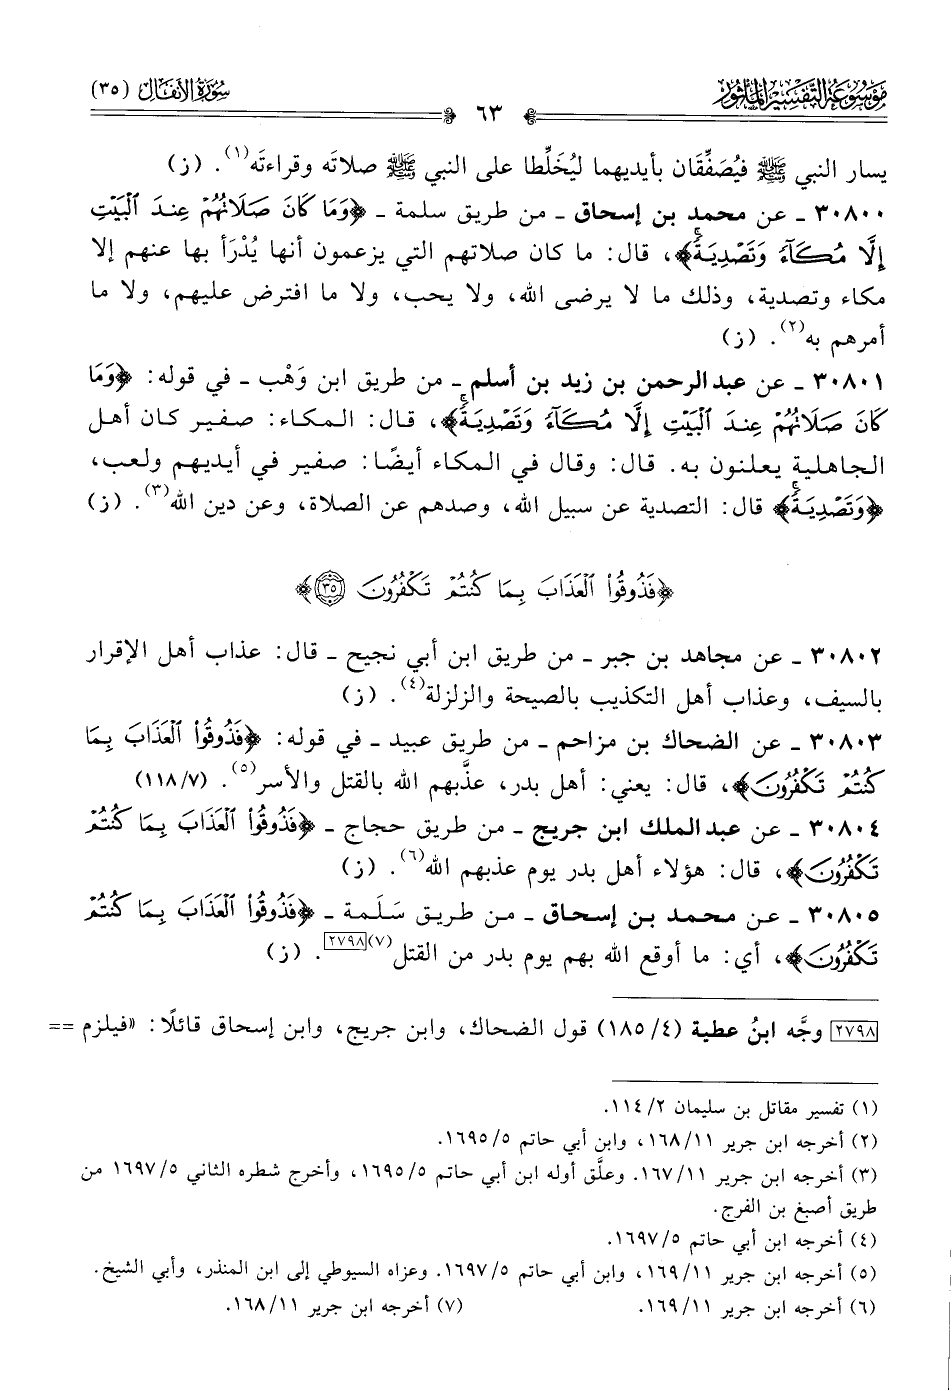 موسوعة التفسير المأثور
٦٣
سورة الأنفال (٣٥)
يسار النبي ﷺ فيُصَفِّقَان بأيديهما ليُخَلِّطا على النبي ﷺ صلاتَه وقراءتَه(١). (ز)
٣٠٨٠٠ ـ عن محمد بن إسحاق ـ من طريق سلمة ـ ﴿وَمَا كَانَ صَلَاتُهُمْ عِندَ ٱلْبَيْتِ
إِلَّا مُكَآءً وَتَصْدِيَةً﴾، قال: ما كان صلاتهم التي يزعمون أنها يُدْرَأ بها عنهم إلا
مكاء وتصدية، وذلك ما لا يرضى الله، ولا يحب، ولا ما افترض عليهم، ولا ما
أمرهم به(٢). (ز)
٣٠٨٠١ ـ عن عبد الرحمن بن زيد بن أسلم ـ من طريق ابن وَهْب ـ في قوله: ﴿وَمَا
كَانَ صَلَاتُهُمْ عِندَ ٱلْبَيْتِ إِلَّا مُكَآءً وَتَصْدِيَةً﴾، قال: المكاء: صفير كان أهل
الجاهلية يعلنون به. قال: وقال في المكاء أيضًا: صفير في أيديهم ولعب،
﴿وَتَصْدِيَةً﴾ قال: التصدية عن سبيل الله، وصدهم عن الصلاة، وعن دين الله(٣). (ز)
﴿فَذُوقُوا۟ ٱلْعَذَابَ بِمَا كُنتُمْ تَكْفُرُونَ ٣٥﴾
٣٠٨٠٢ ـ عن مجاهد بن جبر ـ من طريق ابن أبي نجيح ـ قال: عذاب أهل الإقرار
بالسيف، وعذاب أهل التكذيب بالصيحة والزلزلة(٤). (ز)
٣٠٨٠٣ ـ عن الضحاك بن مزاحم ـ من طريق عبيد ـ في قوله: ﴿فَذُوقُوا۟ ٱلْعَذَابَ بِمَا
كُنتُمْ تَكْفُرُونَ﴾، قال: يعني: أهل بدر، عذَّبهم الله بالقتل والأسر(٥). (١١٨/٧)
٣٠٨٠٤ ـ عن عبد الملك ابن جريج ـ من طريق حجاج ـ ﴿فَذُوقُوا۟ ٱلْعَذَابَ بِمَا كُنتُمْ
تَكْفُرُونَ﴾، قال: هؤلاء أهل بدر يوم عذبهم الله(٦). (ز)
٣٠٨٠٥ ـ عن محمد بن إسحاق ـ من طريق سَلَمة ـ ﴿فَذُوقُوا۟ ٱلْعَذَابَ بِمَا كُنتُمْ
تَكْفُرُونَ﴾، أي: ما أوقع الله بهم يوم بدر من القتل(٧)[٢٧٩٨]. (ز)
[٢٧٩٨] وجَّه ابنُ عطية (٤/ ١٨٥) قول الضحاك، وابن جريج، وابن إسحاق قائلًا: «فيلزم ==
(١) تفسير مقاتل بن سليمان ٢/ ١١٤.
(٢) أخرجه ابن جرير ١١/ ١٦٨، وابن أبي حاتم ٥/ ١٦٩٥.
(٣) أخرجه ابن جرير ١١/ ١٦٧. وعلَّق أوله ابن أبي حاتم ٥/ ١٦٩٥، وأخرج شطره الثاني ٥/ ١٦٩٧ من
طريق أصبغ بن الفرج.
(٤) أخرجه ابن أبي حاتم ٥/ ١٦٩٧.
(٥) أخرجه ابن جرير ١١/ ١٦٩، وابن أبي حاتم ٥/ ١٦٩٧. وعزاه السيوطي إلى ابن المنذر، وأبي الشيخ.
(٦) أخرجه ابن جرير ١١/ ١٦٩. (٧) أخرجه ابن جرير ١١/ ١٦٨.